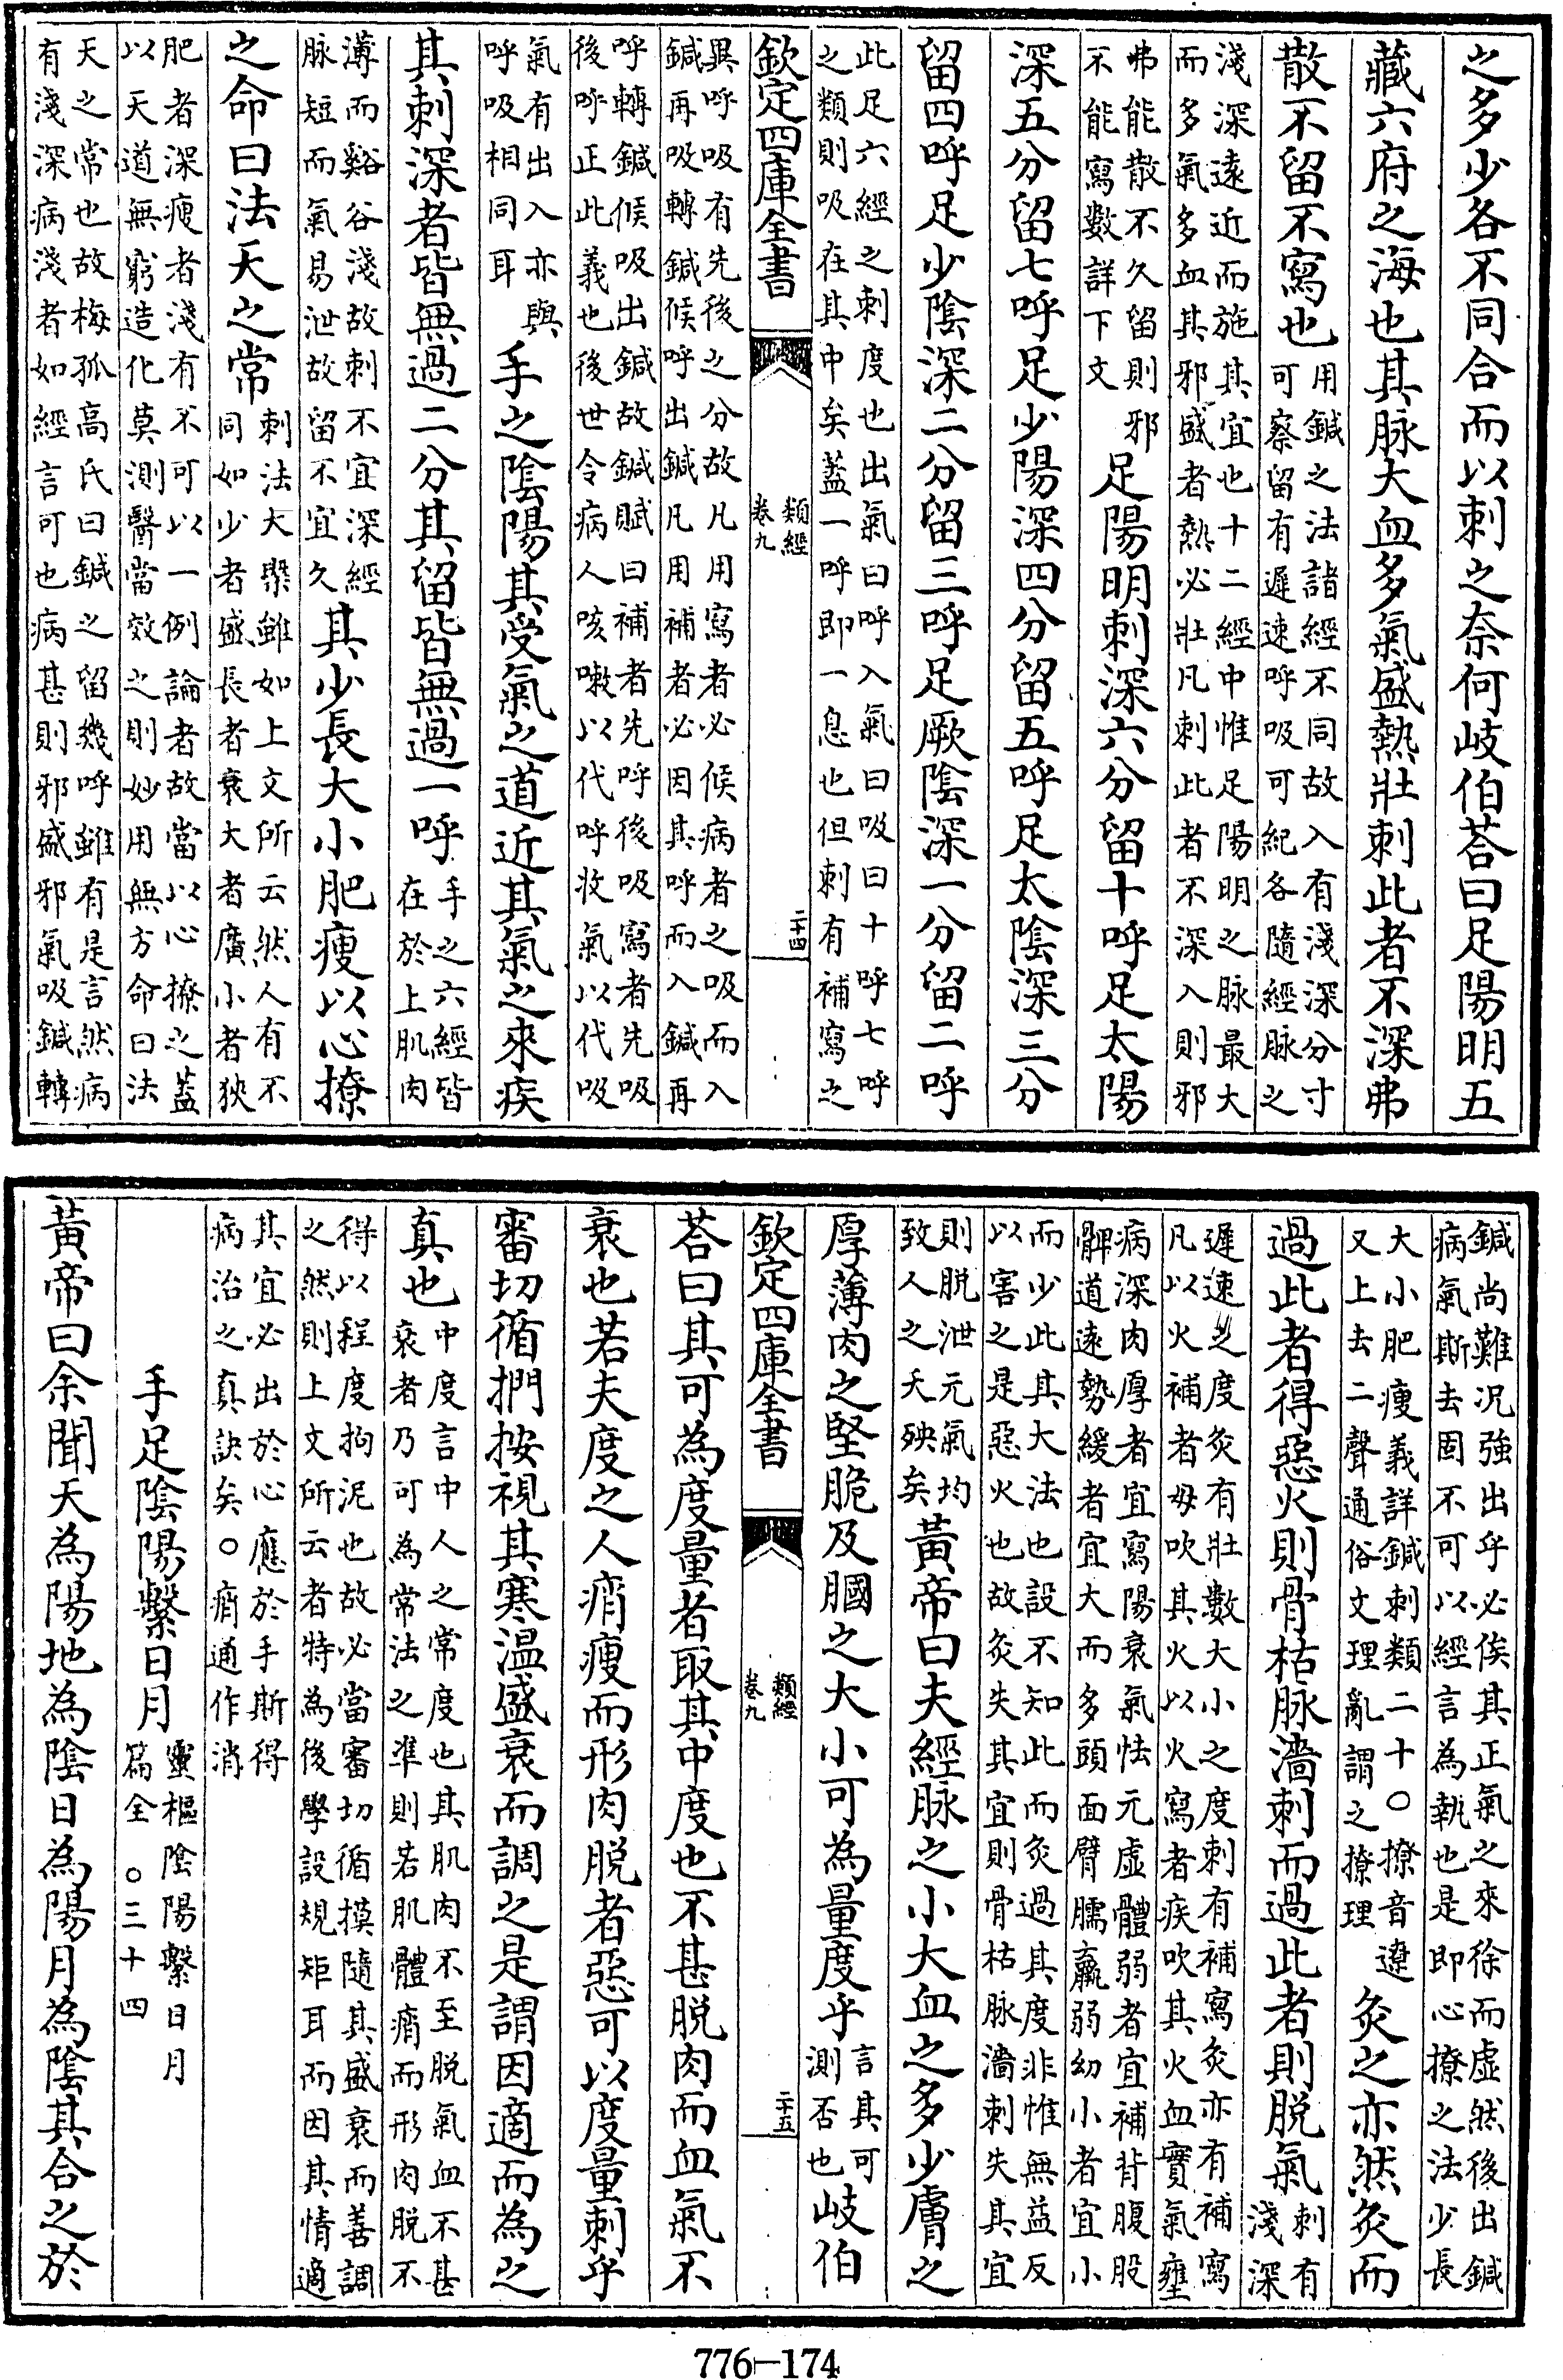 之多少各不同合而以刺之奈何岐伯荅曰足陽明五
藏六府之海也其脉大血多氣盛熱壯刺此者不深弗
散不留不寫也用鍼之法諸經不同故入有淺深分寸
可察留有遲速呼吸可紀各隨經脉之
淺深遠近而施其宜也十二經中惟足陽明之脉最大
而多氣多血其邪盛者熱必壯凡刺此者不深入則邪
弗能散不久留則邪
不能寫數詳下文足陽明刺深六分留十呼足太陽
深五分留七呼足少陽深四分留五呼足太陰深三分
留四呼足少陰深二分留三呼足厥陰深一分留二呼
此足六經之刺度也出氣曰呼入氣曰吸曰十呼七呼
之類則吸在其中矣蓋一呼即一息也但刺有補寫之
欽定四庫全書
類經
卷九
二十四
異呼吸有先後之分故凡用寫者必候病者之吸而入
鍼再吸轉鍼候呼出鍼凡用補者必因其呼而入鍼再
呼轉鍼候吸出鍼故鍼賦曰補者先呼後吸寫者先吸
後呼正此義也後世令病人咳嗽以代呼收氣以代吸
氣有出入亦與
呼吸相同耳手之陰陽其受氣之道近其氣之來疾
其刺深者皆無過二分其留皆無過一呼手之六經皆
在於上肌肉
薄而谿谷淺故刺不宜深經
脉短而氣易泄故留不宜久其少長大小肥瘦以心撩
之命曰法天之常刺法大槩雖如上文所云然人有不
同如少者盛長者衰大者廣小者狹
肥者深瘦者淺有不可以一例論者故當以心撩之蓋
以天道無窮造化莫測醫當效之則妙用無方命曰法
天之常也故梅孤高氏曰鍼之留幾呼雖有是言然病
有淺深病淺者如經言可也病甚則邪盛邪氣吸鍼轉
鍼尚難况強出乎必俟其正氣之來徐而虛然後出鍼
病氣斯去固不可以經言為執也是即心撩之法少長
大小肥瘦義詳鍼刺類二十○撩音遼
又上去二聲通俗文理亂謂之撩理灸之亦然灸而
過此者得惡火則骨枯脉濇刺而過此者則脱氣刺有
淺深
遲速之度灸有壯數大小之度刺有補寫灸亦有補寫
凡以火補者毋吹其火以火寫者疾吹其火血實氣壅
病深肉厚者宜寫陽衰氣怯元虛體弱者宜補背腹股
髀道遠勢緩者宜大而多頭面臂臑羸弱幼小者宜小
而少此其大法也設不知此而灸過其度非惟無益反
以害之是惡火也故灸失其宜則骨枯脉濇刺失其宜
則脱泄元氣均
致人之夭殃矣黃帝曰夫經脉之小大血之多少膚之
厚薄肉之堅脆及䐃之大小可為量度乎言其可
測否也岐伯
欽定四庫全書
類經
卷九
二十五
荅曰其可為度量者取其中度也不甚脱肉而血氣不
衰也若夫度之人痟瘦而形肉脱者惡可以度量刺乎
審切循捫按視其寒温盛衰而調之是謂因適而為之
真也中度言中人之常度也其肌肉不至脱氣血不甚
衰者乃可為常法之準則若肌體痟而形肉脱不
得以程度拘泥也故必當審切循摸隨其盛衰而善調
之然則上文所云者特為後學設規矩耳而因其情適
其宜必出於心應於手斯得
病治之真訣矣○痟通作消
手足陰陽繫日月靈樞陰陽繫日月
篇全○三十四
黃帝曰余聞天為陽地為陰日為陽月為陰其合之於
776—174